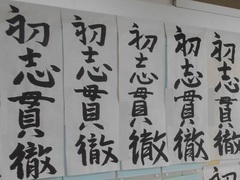 初志貫徹
初志貫徹
初志貫徹
初志貫徹
初志貫徹